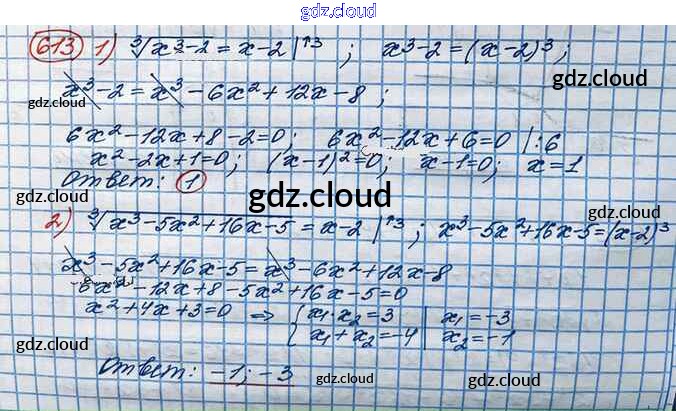 gdz.cloud
613 1) ∛x³-2 = x-2 |↑3 ; x³-2=(x-2)³;
gdz.cloud
x³-2=x³-6x²+12x-8;
gdz.cloud
6x²-12x+8-2=0; 6x²-12x+6=0 |:6
x²-2x+1=0; (x-1)²=0; x-1=0; x=1
gdz.cloud gdz.cloud
Ответ: 1
gdz.cloud
2) ∛x³-5x²+16x-5 = x-2 |↑3 ; x³-5x²+16x-5=(x-2)³
gdz.cloud
x³-5x²+16x-5=x³-6x²+12x-8
6x²-12x+8-5x²+16x-5=0
x²+4x+3=0 ⇒ { x₁·x₂=3 | x₁=-3
x₁+x₂=-4 | x₂=-1
gdz.cloud
Ответ: -1; -3
gdz.cloud gdz.cloud